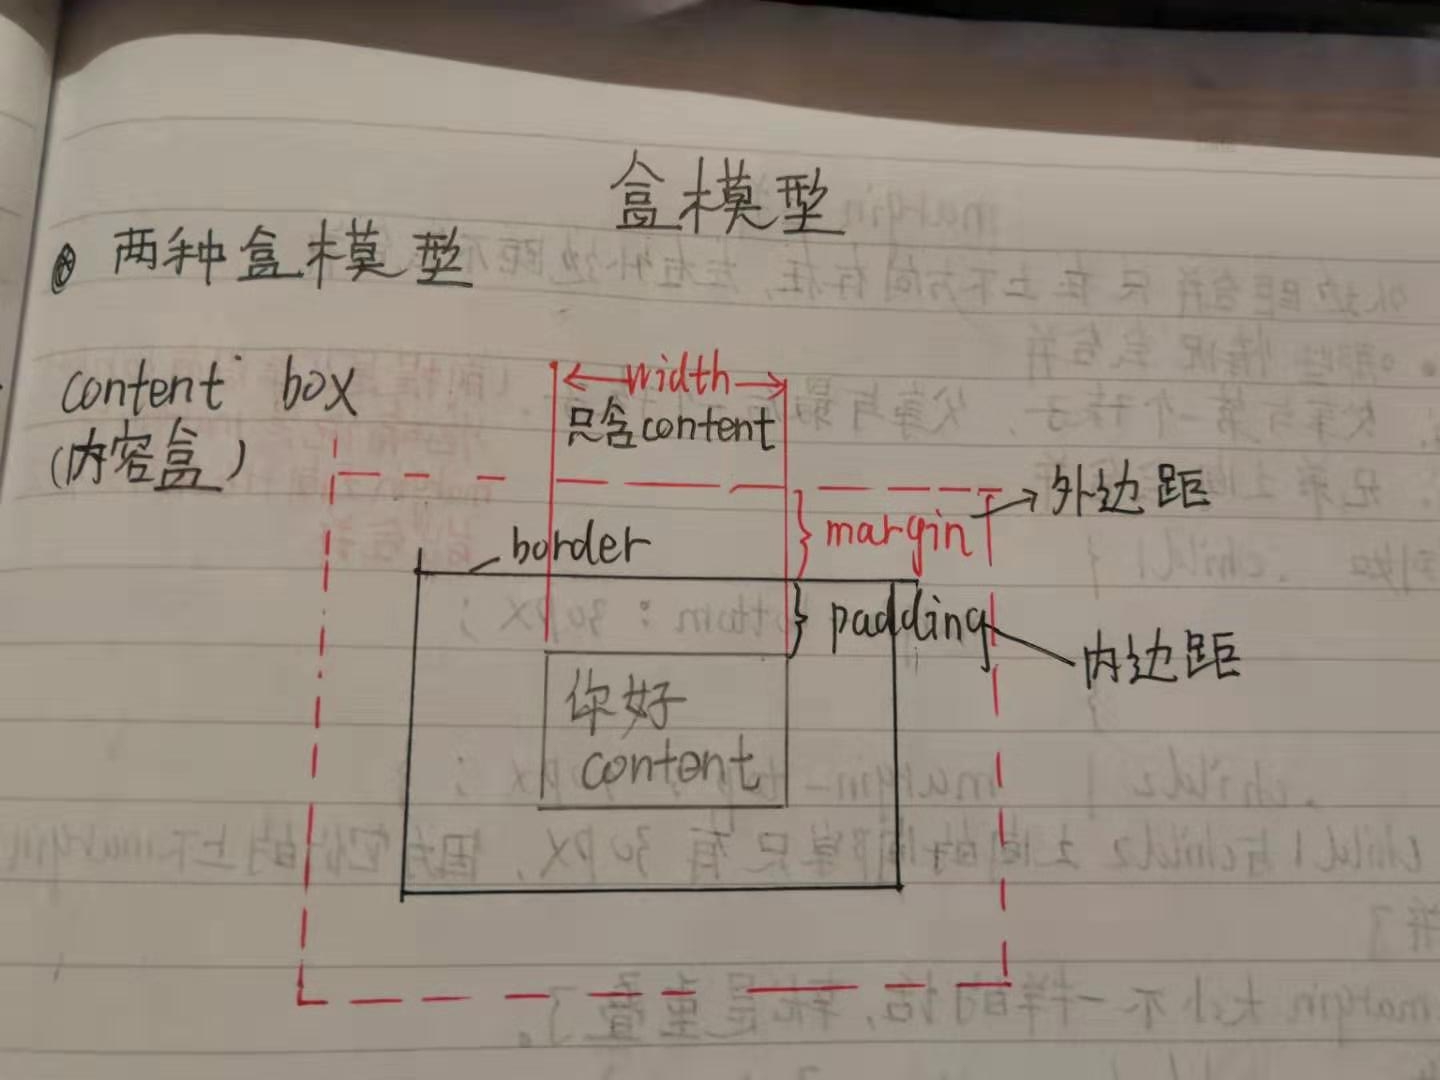 盒模型
两种盒模型
content box
(内容盒)
width
只含content
border
margin
外边距
padding
内边距
你好
content